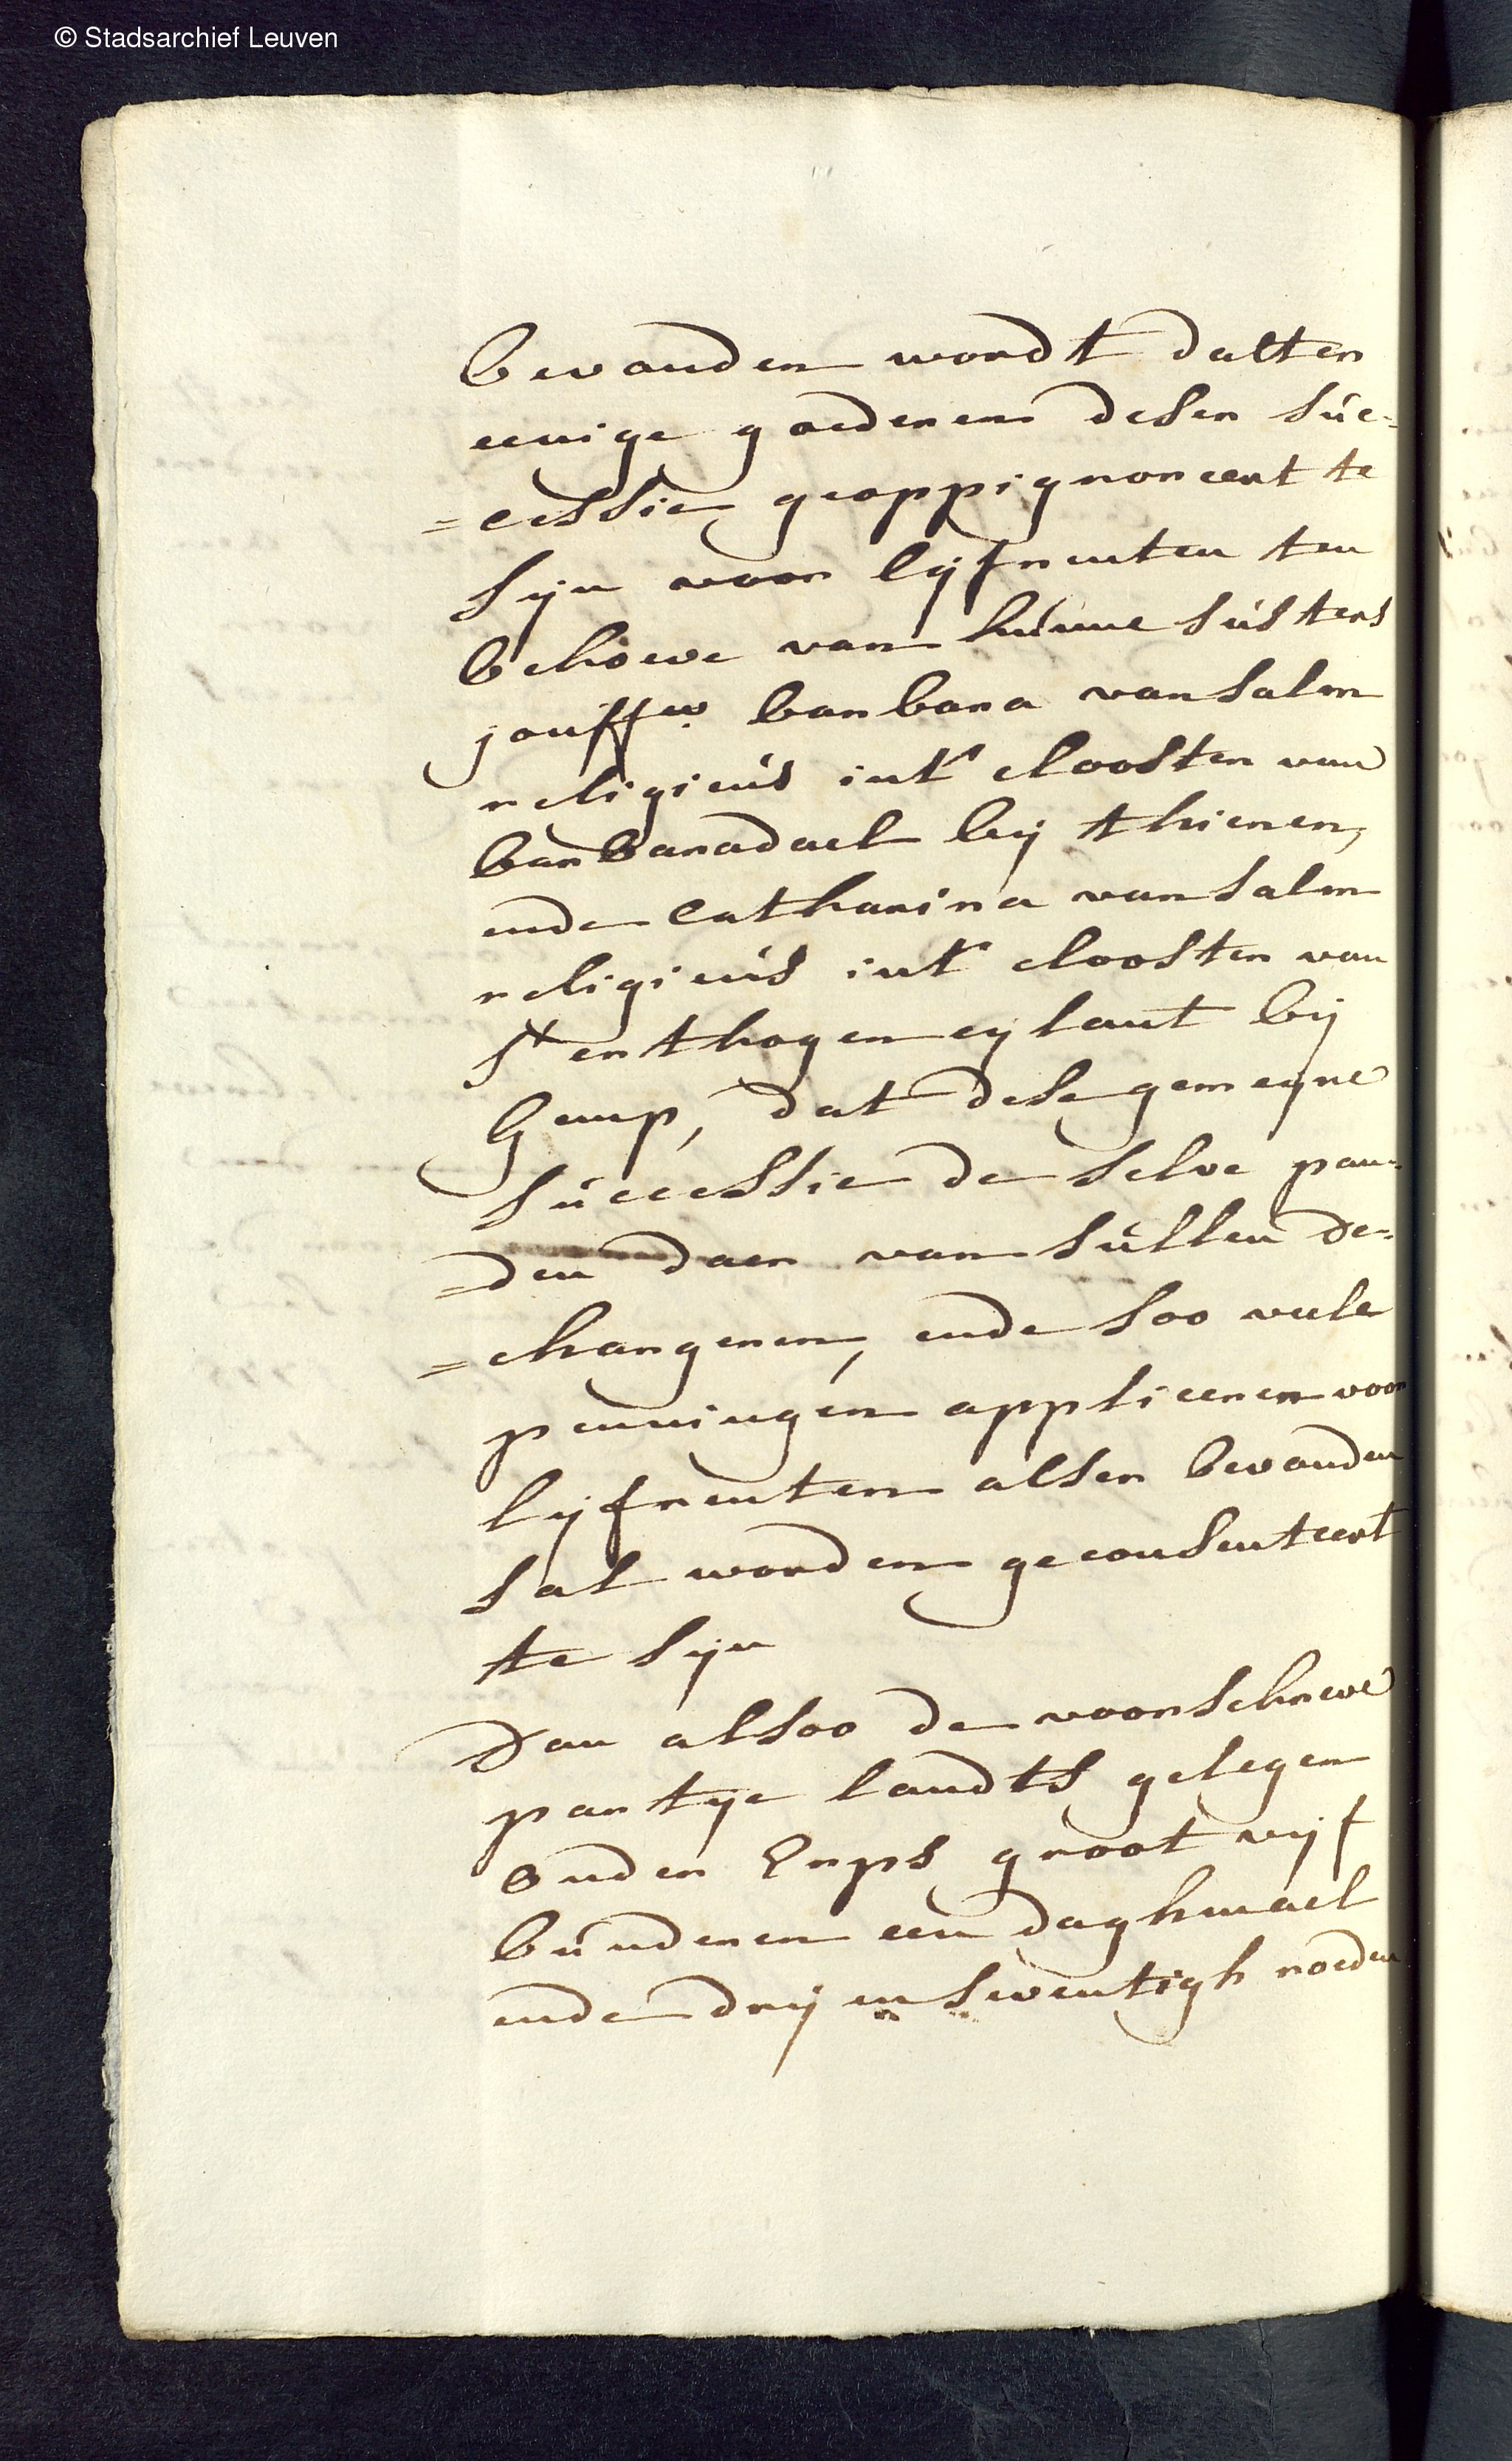 © Stadsarchief Leuven
bevonden wordt datter
eenige goederen deser suc=
=cessie geoppignoreert te
syn voor lyfrenten ten
behoeve van hunne susters
jouffw. barbara van salm
religieus int' clooster van
barbaradael bij thienen,
ende Catharina van salm
religieus int' clooster van
St enthogeneylant bij
Gemp, dat dese gemeyne
successie de selve pan=
=den daer van sullen de=
=chargeren, ende soo veele
penningen appliceren voor
lyfrenten alser bevonden
sal worden geconsenteert
te syn
Dan alsoo de voorschreve
partye landts gelegen
onder Erps groot vyf
bunderen een daghmael
ende drij en seventigh roeden